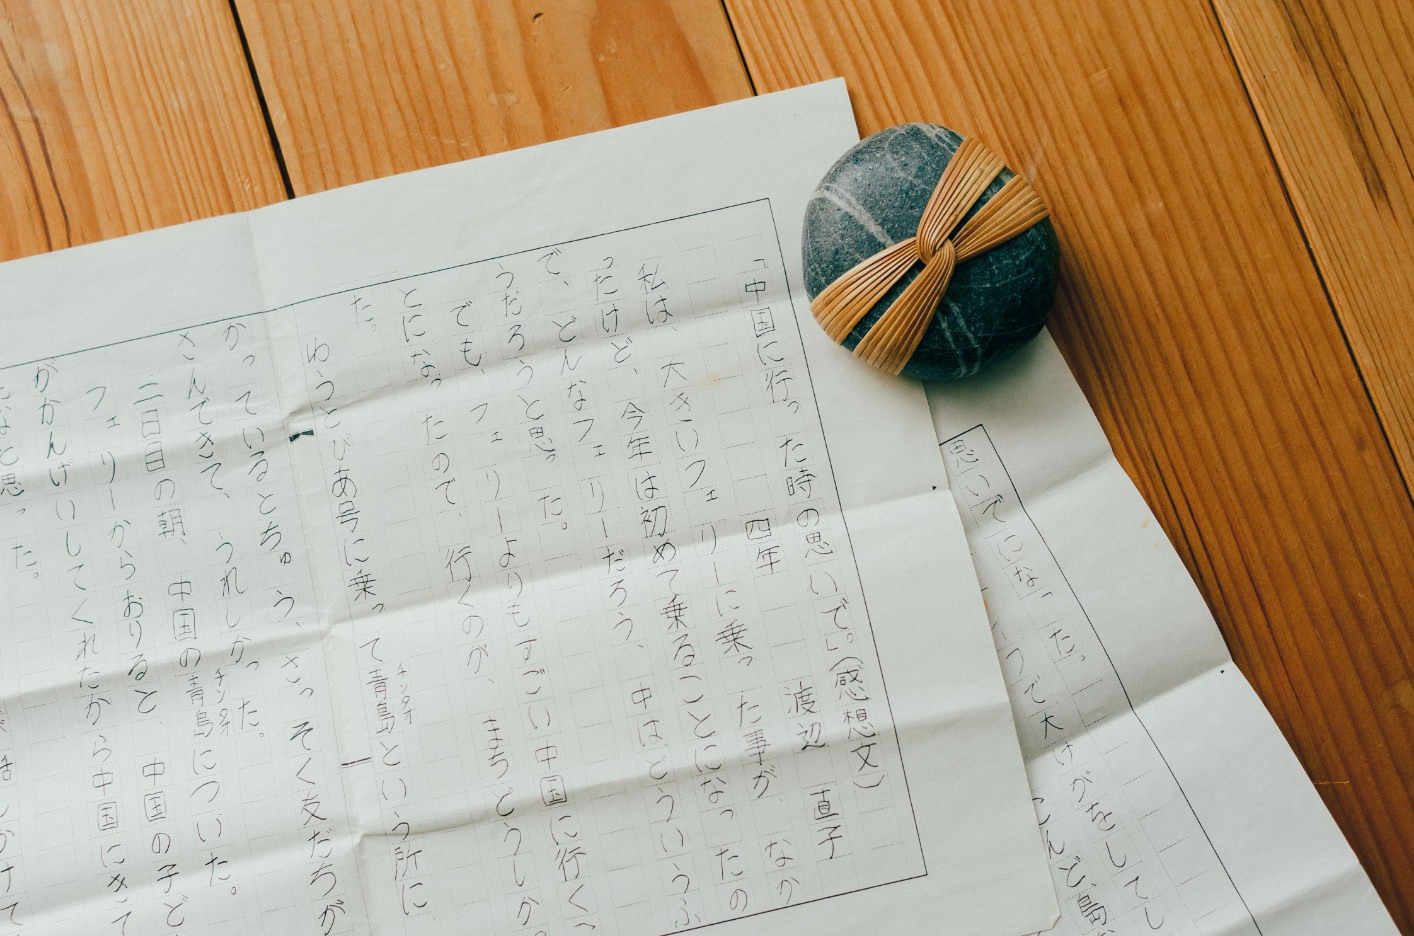 「中国に行った時の思いで。」(感想文)
四年　渡辺　直子
私は、大きいフェリーに乗った事が、なか
ったけど、今年は初めて乗ることになったの
で、どんなフェリーだろう、中はどういうふ
うだろうと思った。
でも、フェリーよりもすごい中国に行くこ
とになったので、行くのが、まちどうしか
た。
ゆうとぴあ号に乗って青島チンタオという所に
かっているとちゅう、さっそく友だちが
さんできて、うれしかった。
二日目の朝、中国の青島チンタオについた。
フェリーからおりると中国の子ど
がかんげいしてくれたから中国にきて
なと思った。
話しかけて
思いでになった。
つで大けがをしてし